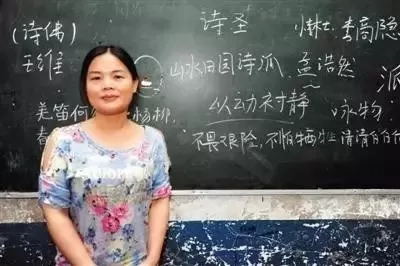 (诗佛)
王维
诗圣
小李杜 李商隐
山水田园诗派 孟浩然
派
以动衬静
羌笛何 杨柳
春
咏物:
不畏艰险,不怕牺牲 清清白白